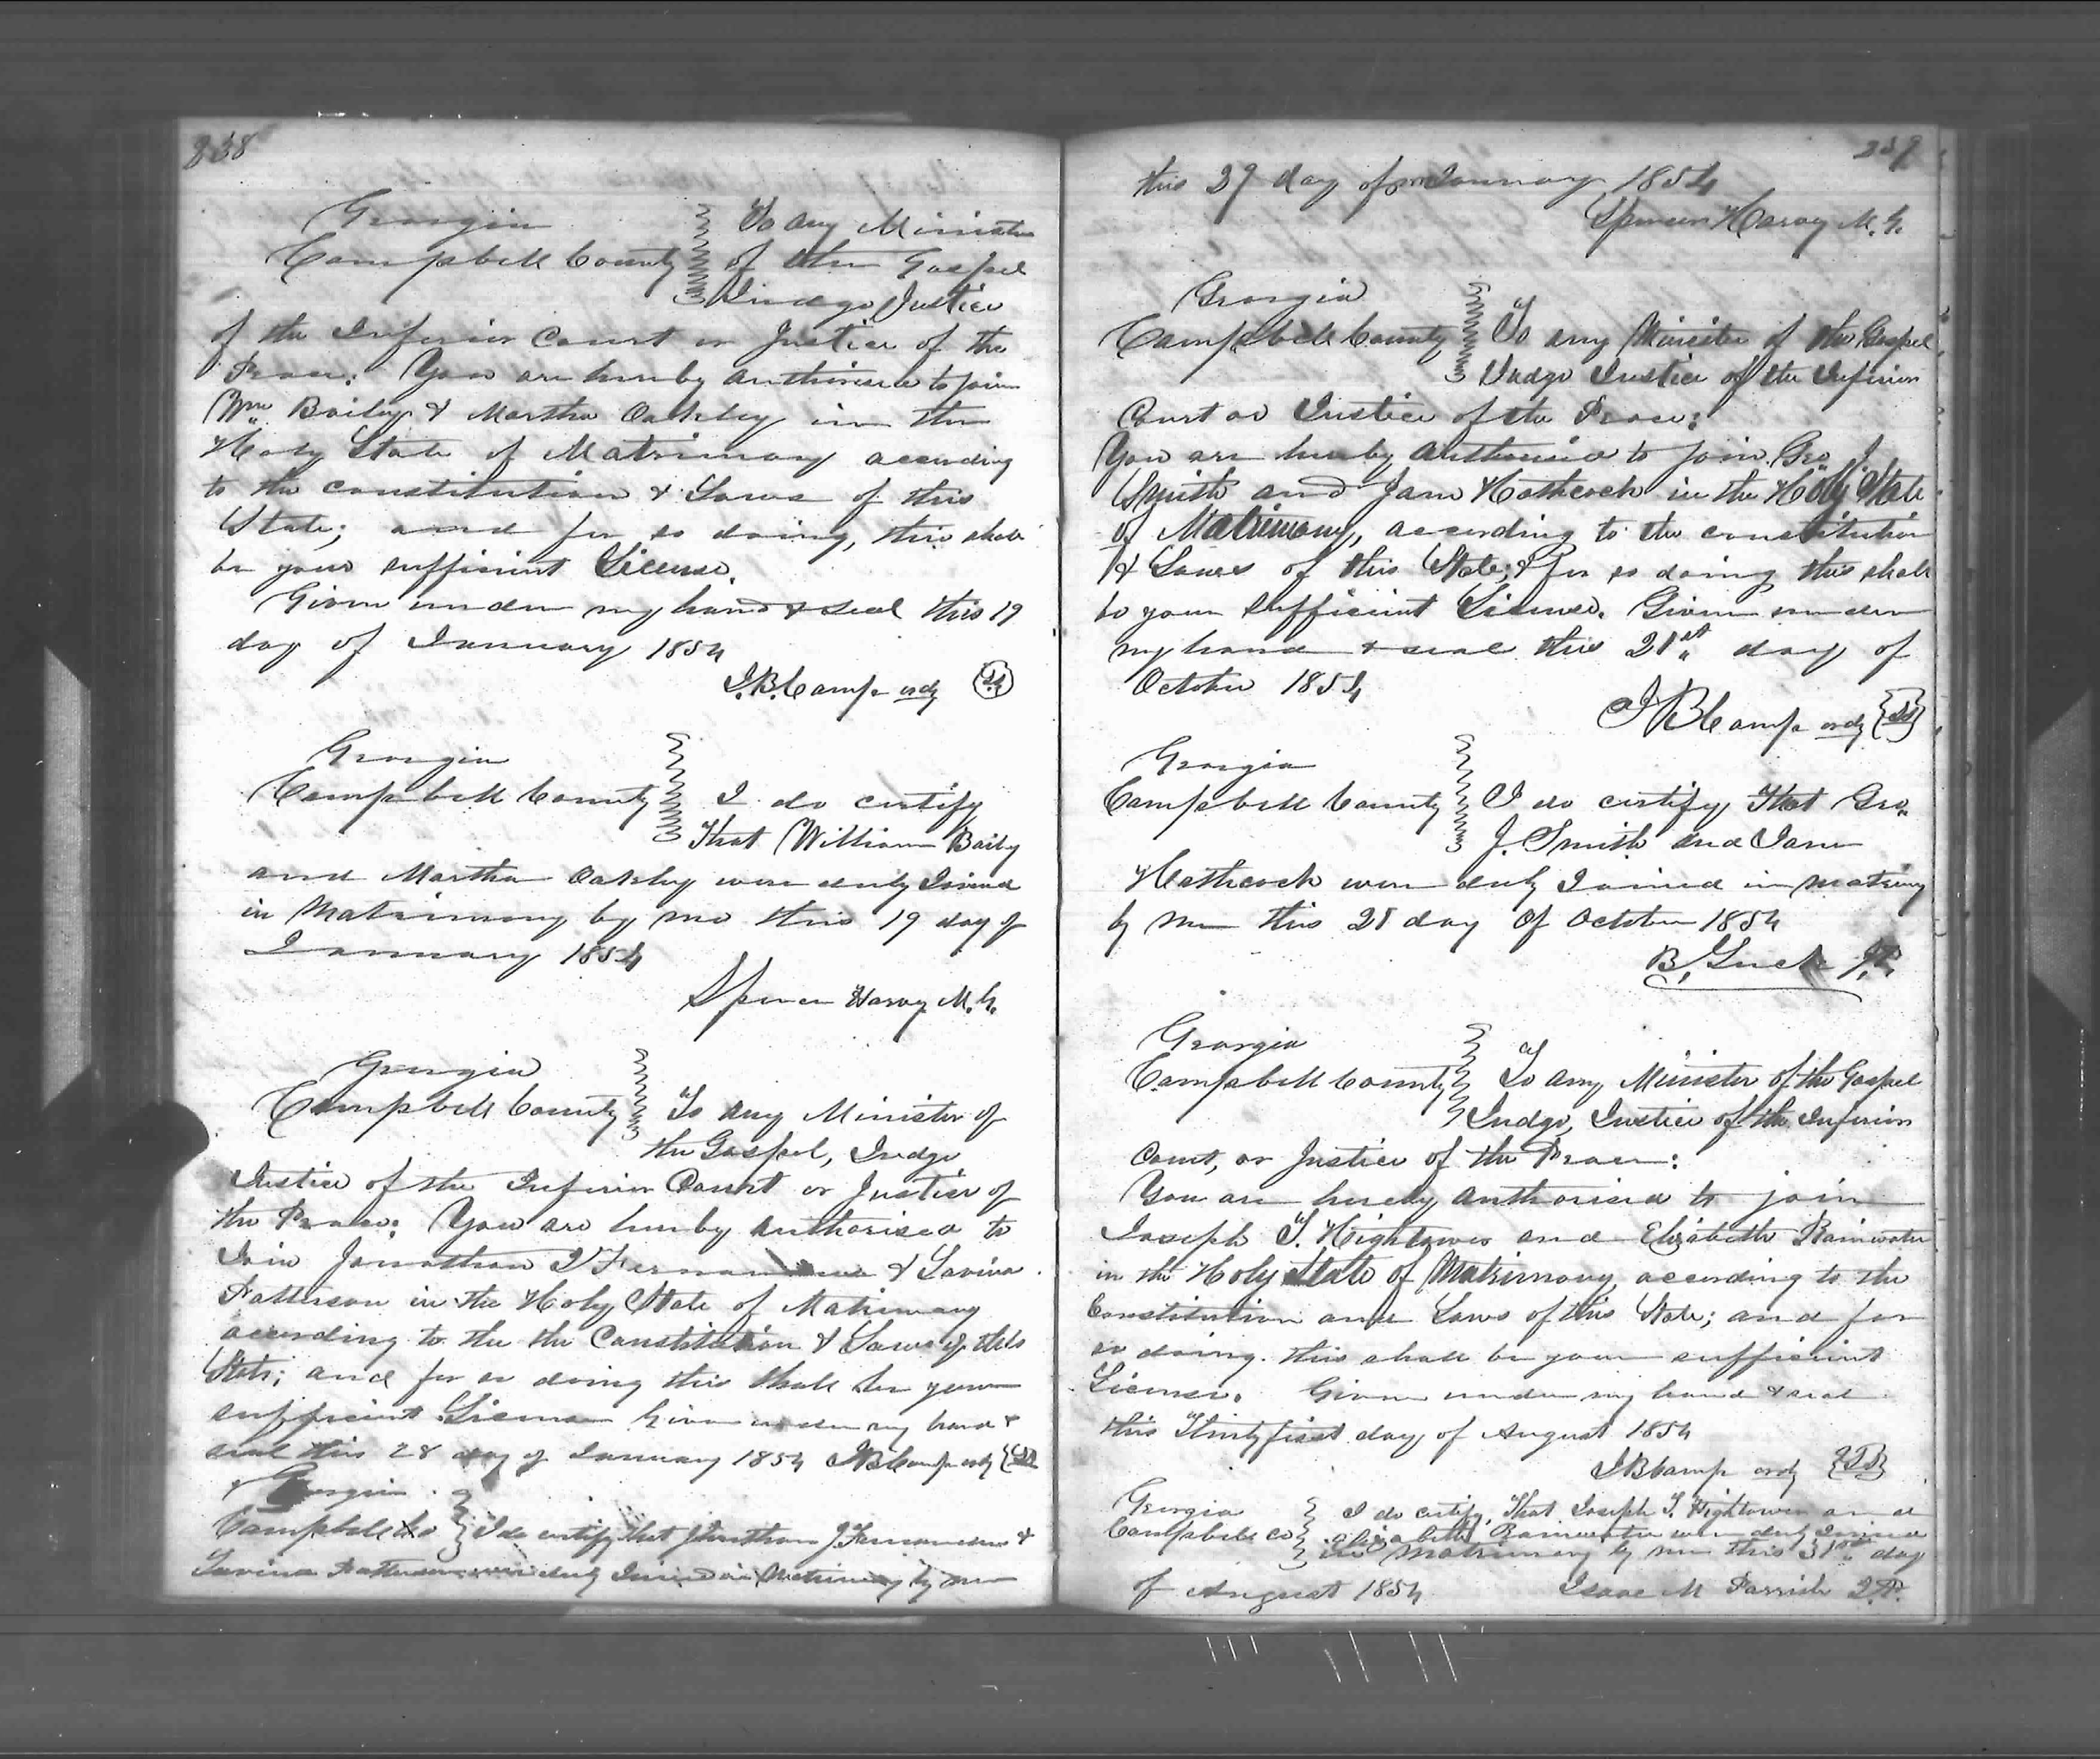 238
Georgia
Campbell County
To any Minister
of the Gospel
Judge Justice
of the Inferior Court or Justice of the
Peace: You are hereby authorised to join
Wm Bailey & Martha Oakley in the
Holy State of Matrimony according
to the constitution & Laws of this
State; and for so doing, this shall
be your sufficient License.
Given under my hand & seal this 19
day of January 1854
J.B. Camp ordy LS
Georgia
Campbell County
I do certify
That William Baily
and Martha Oakley were duly Joined
in Matrimony by me this 19 day of
January 1854
Spencer Harvy M.G.
Georgia
Campbell County
To any Minister of
the Gospel, Judge
Justice of the Inferior Court or Justice of
the Peace: You are hereby authorised to
Join Jonathan J & Lavina
Patterson in the Holy State of Matrimony
according to the the Constitution & Laws of this
State; and for so doing this shall be your
sufficient License Given under my hand &
seal this 28 day of January 1854 JB Camp ordy LS
Georgia
Campbell Co
I do certify that Jonathan J. &
Lavina Patterson were duly Joined in Matrimony by me
239
this 29 day of January 1854
Spencer Harvy M.G.
Georgia
Campbell County
To any Minister of the Gospel
Judge Justice of the Inferior
Court or Justice of the Peace:
You are hereby authorised to join Geo. J.
Smith and Jane Hathcock in the Holy State
of Matrimony, according to the constitution
& Laws of this State; & for so doing this shall
be your sufficient License. Given under
my hand & seal this 21st day of
October 1854
JB Camp ordy LS
Georgia
Campbell County
I do certify That Geo.
J. Smith and Jane
Hathcock were duly Joined in matrimony
by me this day of October 1854
B. J.P.
Georgia
Campbell County
To any Minister of the Gospel
Judge, Justice of the Inferior
Court, or Justice of the Peace:
You are hereby authorised to join
Joseph T. Hightower and Elizabeth Rainwater
in the Holy State of Matrimony according to the
Constitution and Laws of this State; and for
so doing this shall be your sufficient
License. Given under my hand & seal
this Thirty first day of August 1854
JB Camp ordy LS
Georgia
Campbell co
I do certify, That Joseph T. Hightower and
Elizabeth Rainwater were duly Joined
in Matrimony by me this 31st day
of August 1854 Isaac M Parrish J.P.